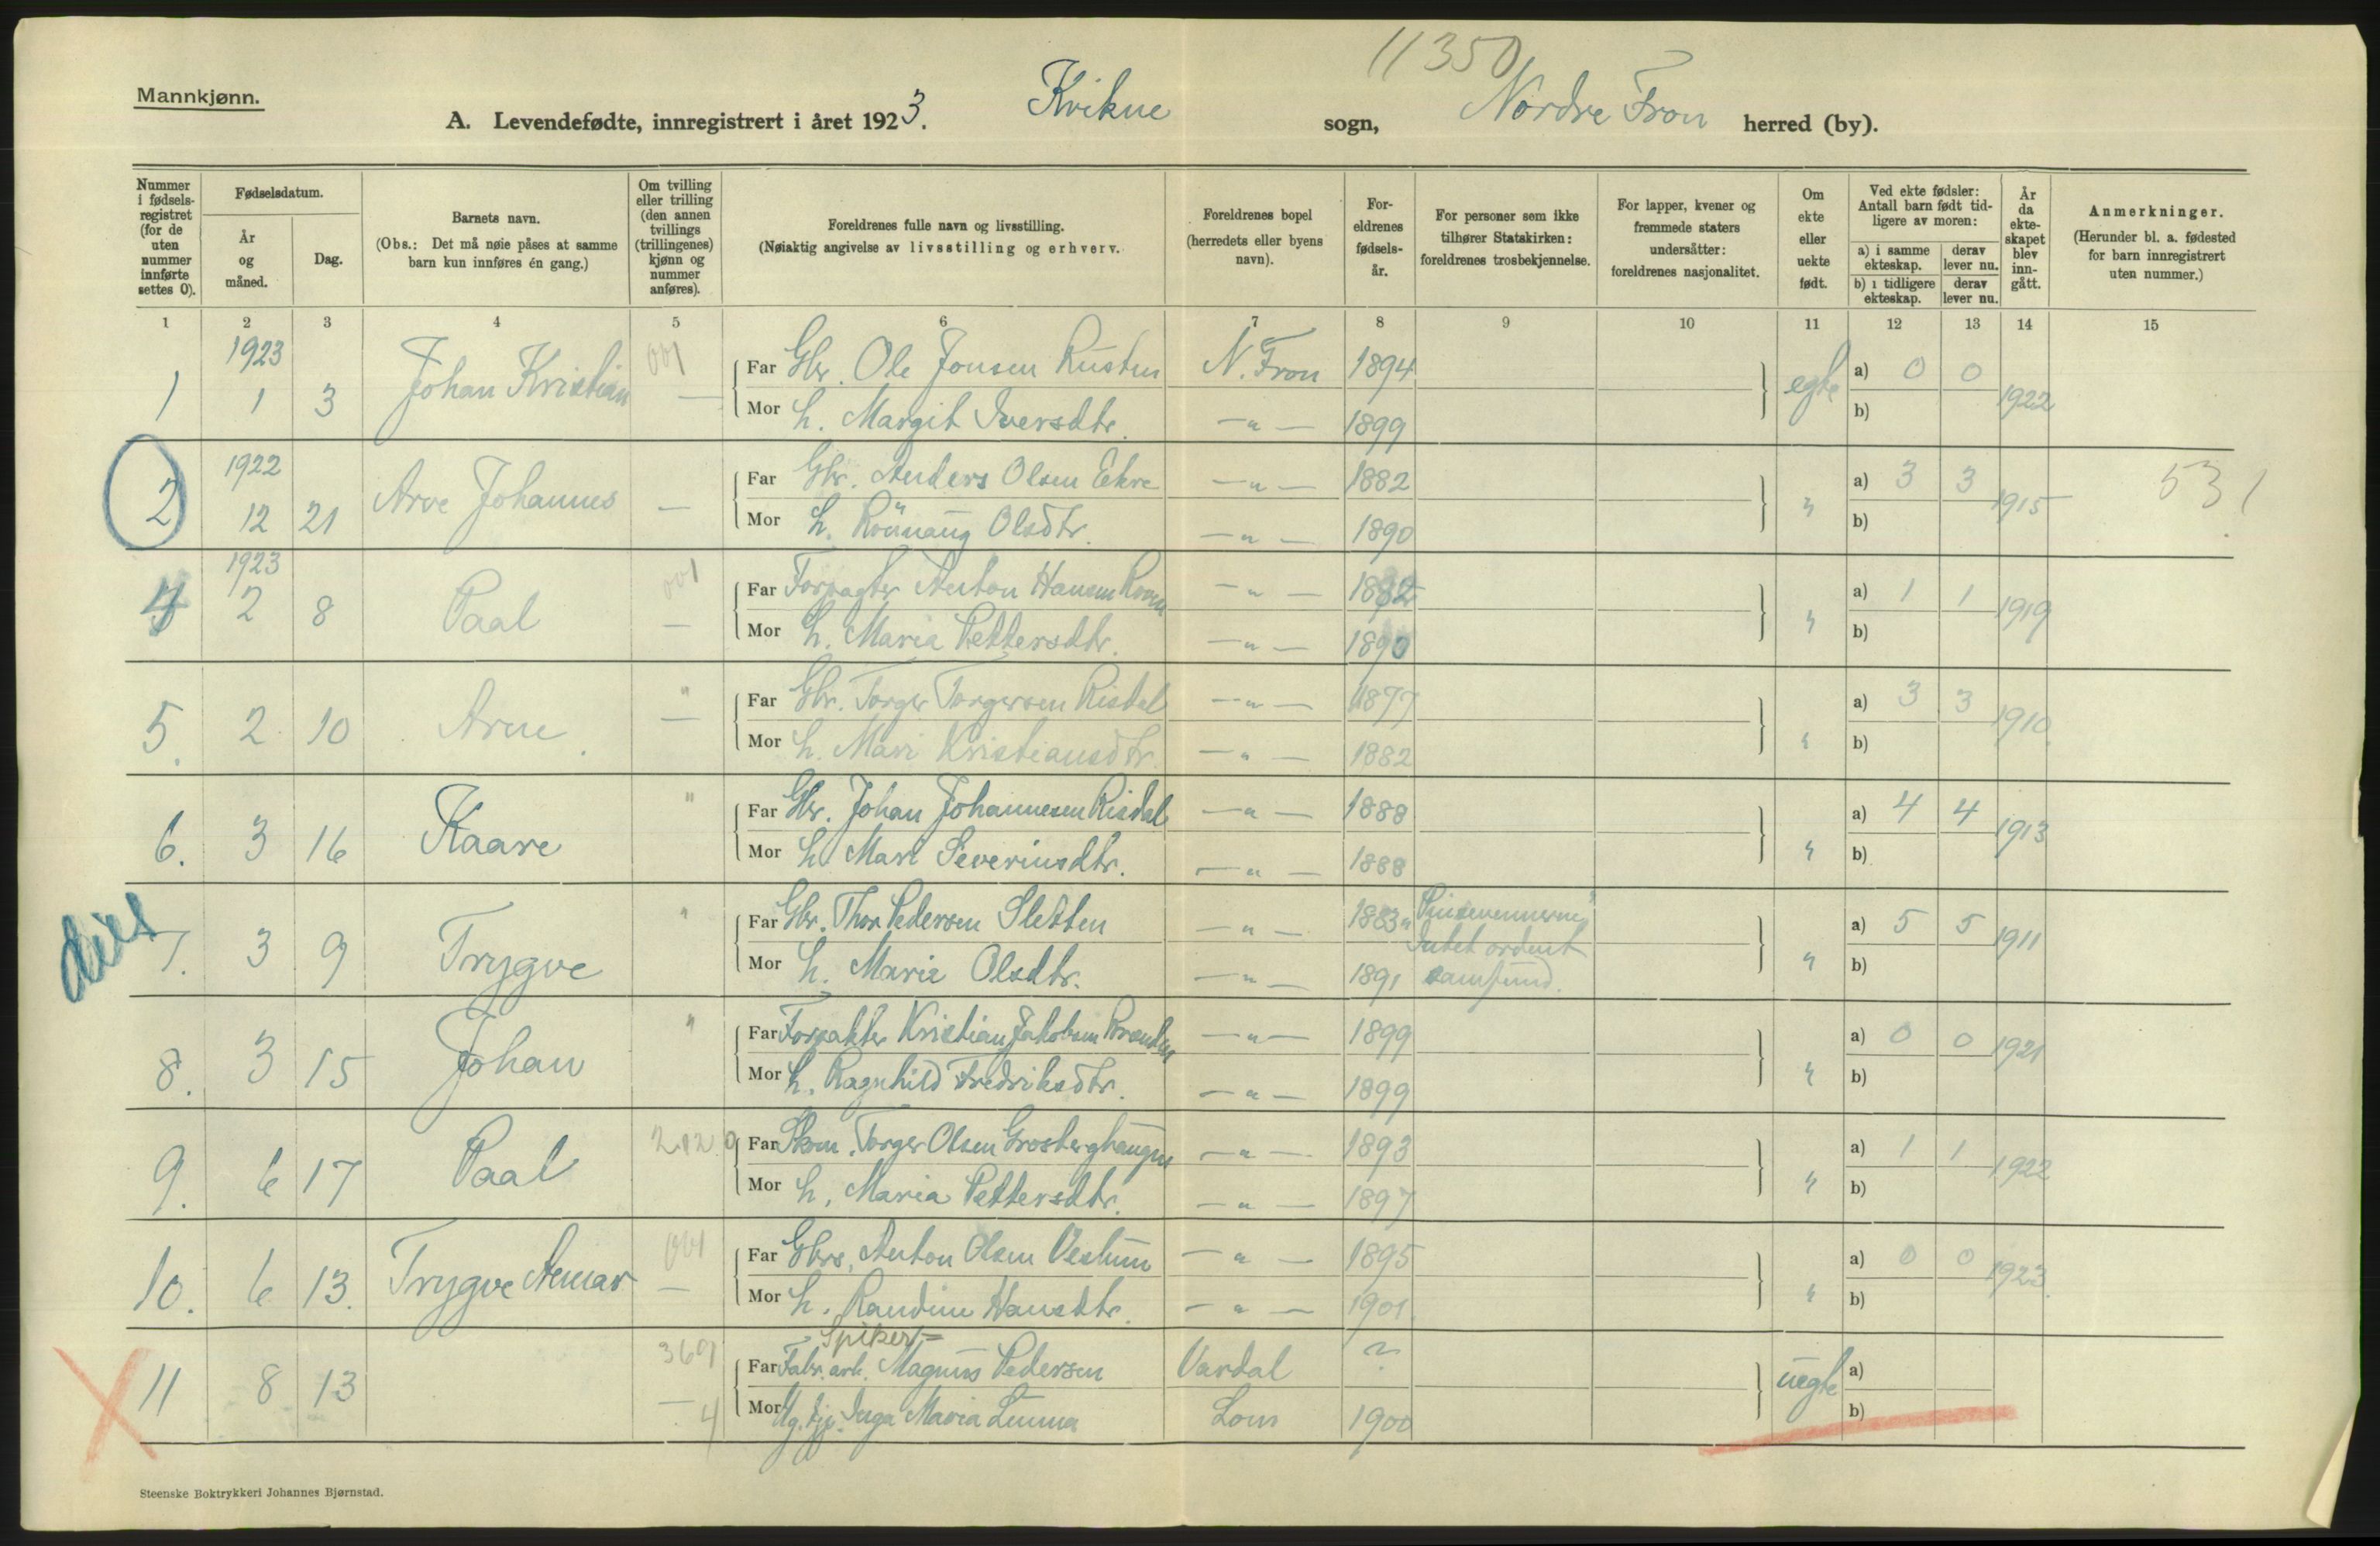 11350
Mannkjønn.
A. Levendefødte, innregistrert i året 1923. Kvikne sogn, Nordre Fron herred (by).
Nummer i fødselsregistret (for de uten nummer innførte settes 0).
Fødselsdatum.
År og måned.
Dag.
Barnets navn.
(Obs.: Det må nøie påses at samme barn kun innføres én gang.)
Om tvilling eller trilling (den annen tvillings (trillingenes) kjønn og nummer anføres).
Foreldrenes fulle navn og livsstilling.
(Nøiaktig angivelse av livsstilling og erhverv.
Foreldrenes bopel (herredets eller byens navn).
Foreldrenes fødselsår.
For personer som ikke tilhører Statskirken: foreldrenes trosbekjennelse.
For lapper, kvener og fremmede staters undersåtter: foreldrenes nasjonalitet.
Om ekte eller uekte født.
Ved ekte fødsler: Antall barn født tidligere av moren:
a) i samme ekteskap. derav lever nu.
b) i tidligere ekteskap. derav lever nu.
År da ekteskapet blev inngått.
Anmerkninger.
(Herunder bl. a. fødested for barn innregistrert uten nummer.)
1 2 3 4 5 6 7 8 9 10 11 12 13 14 15
1923
1 1 3 Johan Kristian 001 — Far Gbr. Ole Jonsen Rusten N. Fron 1894 egte a) 0 0 1922
Mor h. Margit Iversdtr. — " — 1899 b)
1922
2 12 21 Arve Johannes — Far Gbr. Anders Olsen Ekre — " — 1882 " a) 3 3 1915 531
Mor h. Rönnaug Olsdtr. — " — 1890 b)
1923
4 2 8 Paal 001 — Far Forpagter Anton Hansen — " — 1882 " a) 1 1 1919
Mor h. Maria Pettersdtr. — " — 1890 b)
5. 2 10 Arne " — Far Gbr. Torger Torgersen Risdal — " — 1877 " a) 3 3 1910
Mor h. Mari Kristiansdtr. — " — 1882 b)
6. 3 16 Kaare " Far Gbr. Johan Johannesen Risdal — " — 1888 " a) 4 4 1913
Mor h. Mari Severinsdtr. — " — 1888 b)
7. 3 9 Trygve " Far Gbr. Thor Pedersen Sletten — " — 1883 "Pinsevennerne" " a) 5 5 1911
Intet ordent
Mor h. Marie Olsdtr. — " — 1891 samfund. b)
8. 3 15 Johan " Far Forpakter Kristian Jakobsen Branden — " — 1899 " a) 0 0 1921
Mor h. Ragnhild Fredriksdtr. — " — 1899 b)
9. 6 17 Paal 2120 Far Skom. Torger Olsen Grosberghaugen — " — 1893 " a) 1 1 1922
Mor h. Maria Pettersdtr. — " — 1897 b)
10. 6 13. Trygve Annar 001 — Far Gbrs. Anton Olsen Veslum — " — 1895 " a) 0 0 1923
Mor h. Randine Hansdtr. — " — 1901 b)
Spiker-
11 8 13 Far Fabr. arb. Magnus Pedersen Vardal ? uegte a)
— 4 Mor Ug. tjp. Inga Maria Lunna Lom 1900 b)
Steenske Boktrykkeri Johannes Bjørnstad.